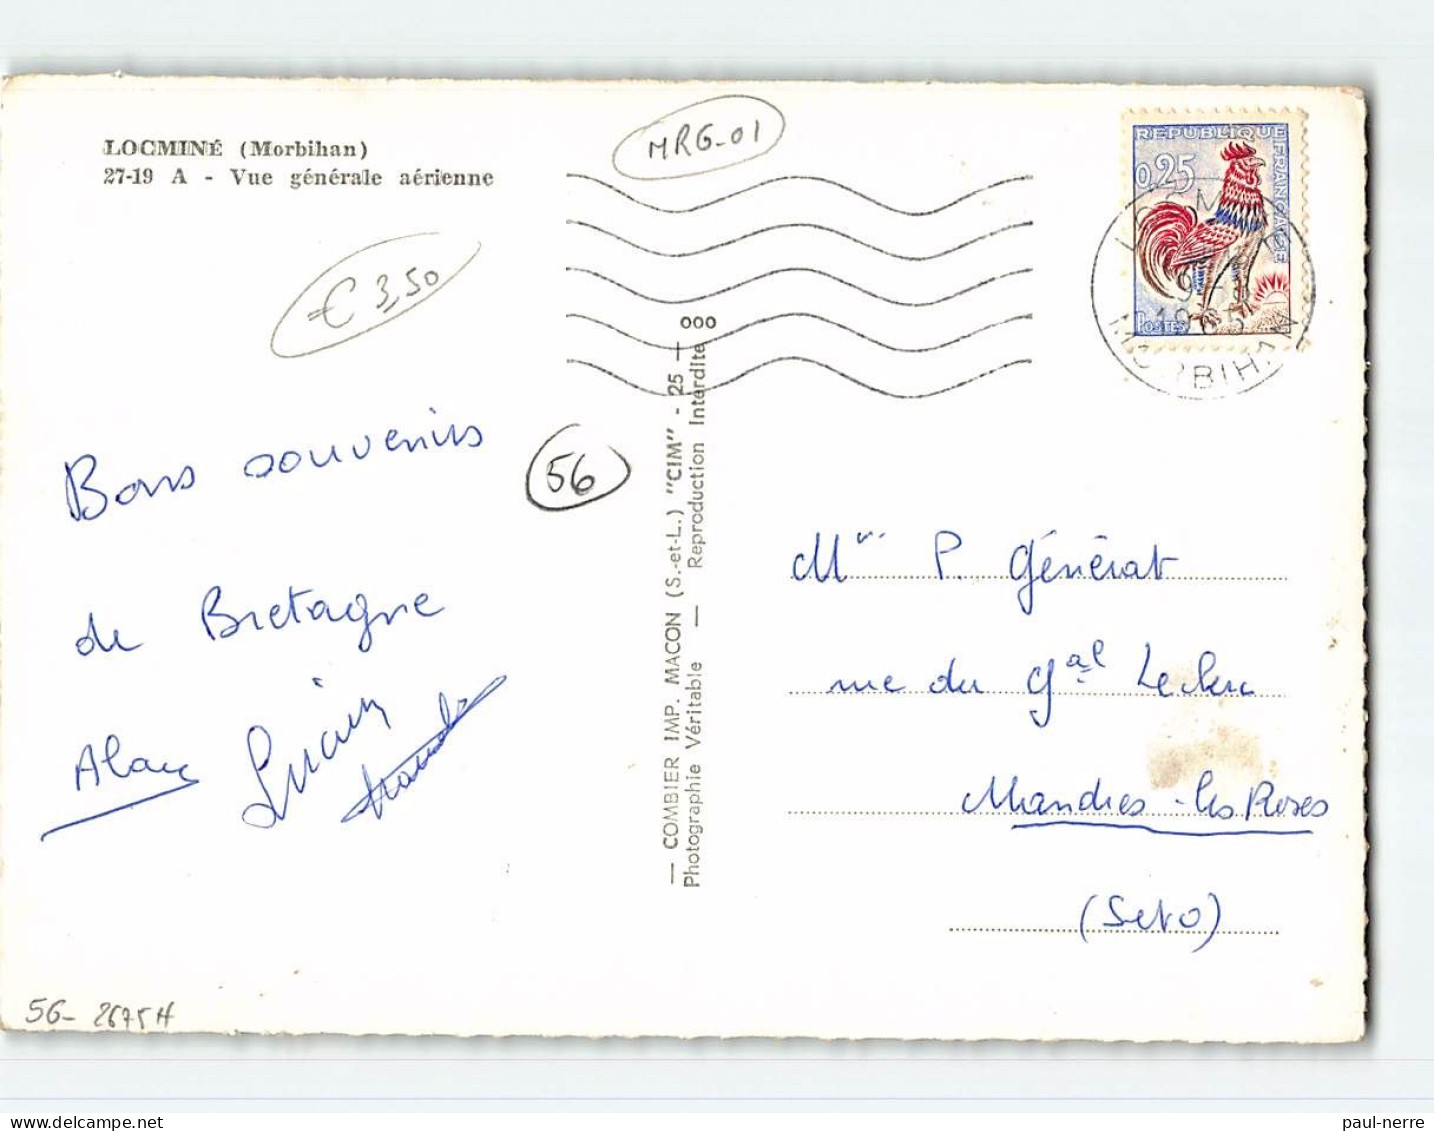 LOCMINÉ (Morbihan)
27-19 A - Vue générale aérienne
MRG-01
€ 3,50
REPUBLIQUE FRANCAISE
0,25
POSTES
MORBIHAN
Bons souvenirs
de Bretagne
Alain
Lucien
56
— COMBIER IMP. MACON (S.-et-L.) "CIM" - 25 — 000
Photographie Véritable — Reproduction Interdite
P. Générat
rue du Gal Leclerc
Mandres-les Roses
(Seto)
56- 2675H
paul-nerre